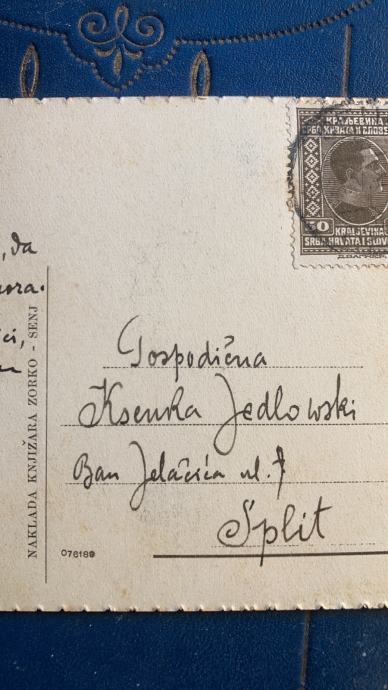 КРАЉЕВИНА
СРБА ХРВАТА И СЛОВЕ
50 KRALJEVINA
SRBA HRVATA I SLOV
, da
Gospodična
Ksenka Jedlowski
Ban Jelačića ul. 7
Split
NAKLADA KNJIŽARA ZORKO - SENJ
076189